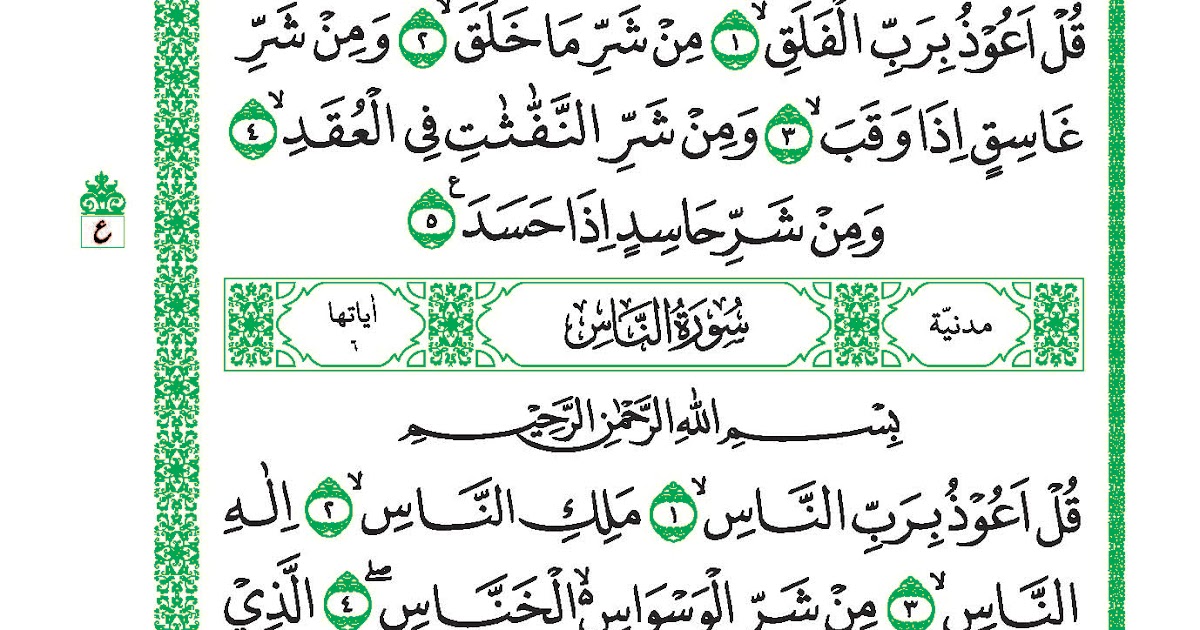 قُلْ اَعُوْذُ بِرَبِّ الْفَلَقِۙ ١ مِنْ شَرِّ مَا خَلَقَۙ ٢ وَمِنْ شَرِّ
غَاسِقٍ اِذَا وَقَبَۙ ٣ وَمِنْ شَرِّ النَّفّٰثٰتِ فِى الْعُقَدِۙ ٤
ع
وَمِنْ شَرِّ حَاسِدٍ اِذَا حَسَدَ ࣖ ٥
مدنيّة سُوْرَةُ النَّاسِ اٰياتها ٦
بِسْمِ اللّٰهِ الرَّحْمٰنِ الرَّحِيْمِ
قُلْ اَعُوْذُ بِرَبِّ النَّاسِۙ ١ مَلِكِ النَّاسِۙ ٢ اِلٰهِ
النَّاسِۙ ٣ مِنْ شَرِّ الْوَسْوَاسِ ەۙ الْخَنَّاسِۖ ٤ الَّذِيْ